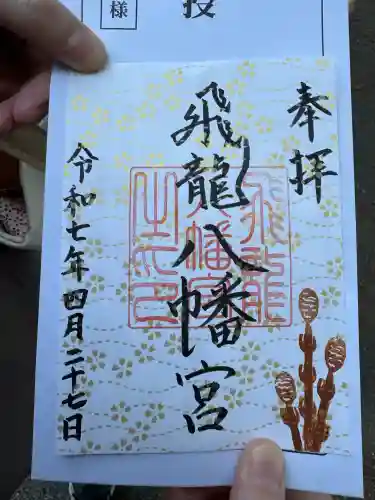 奉拝
飛龍八幡宮
令和七年四月二十七日
飛龍八幡宮之印
授
様